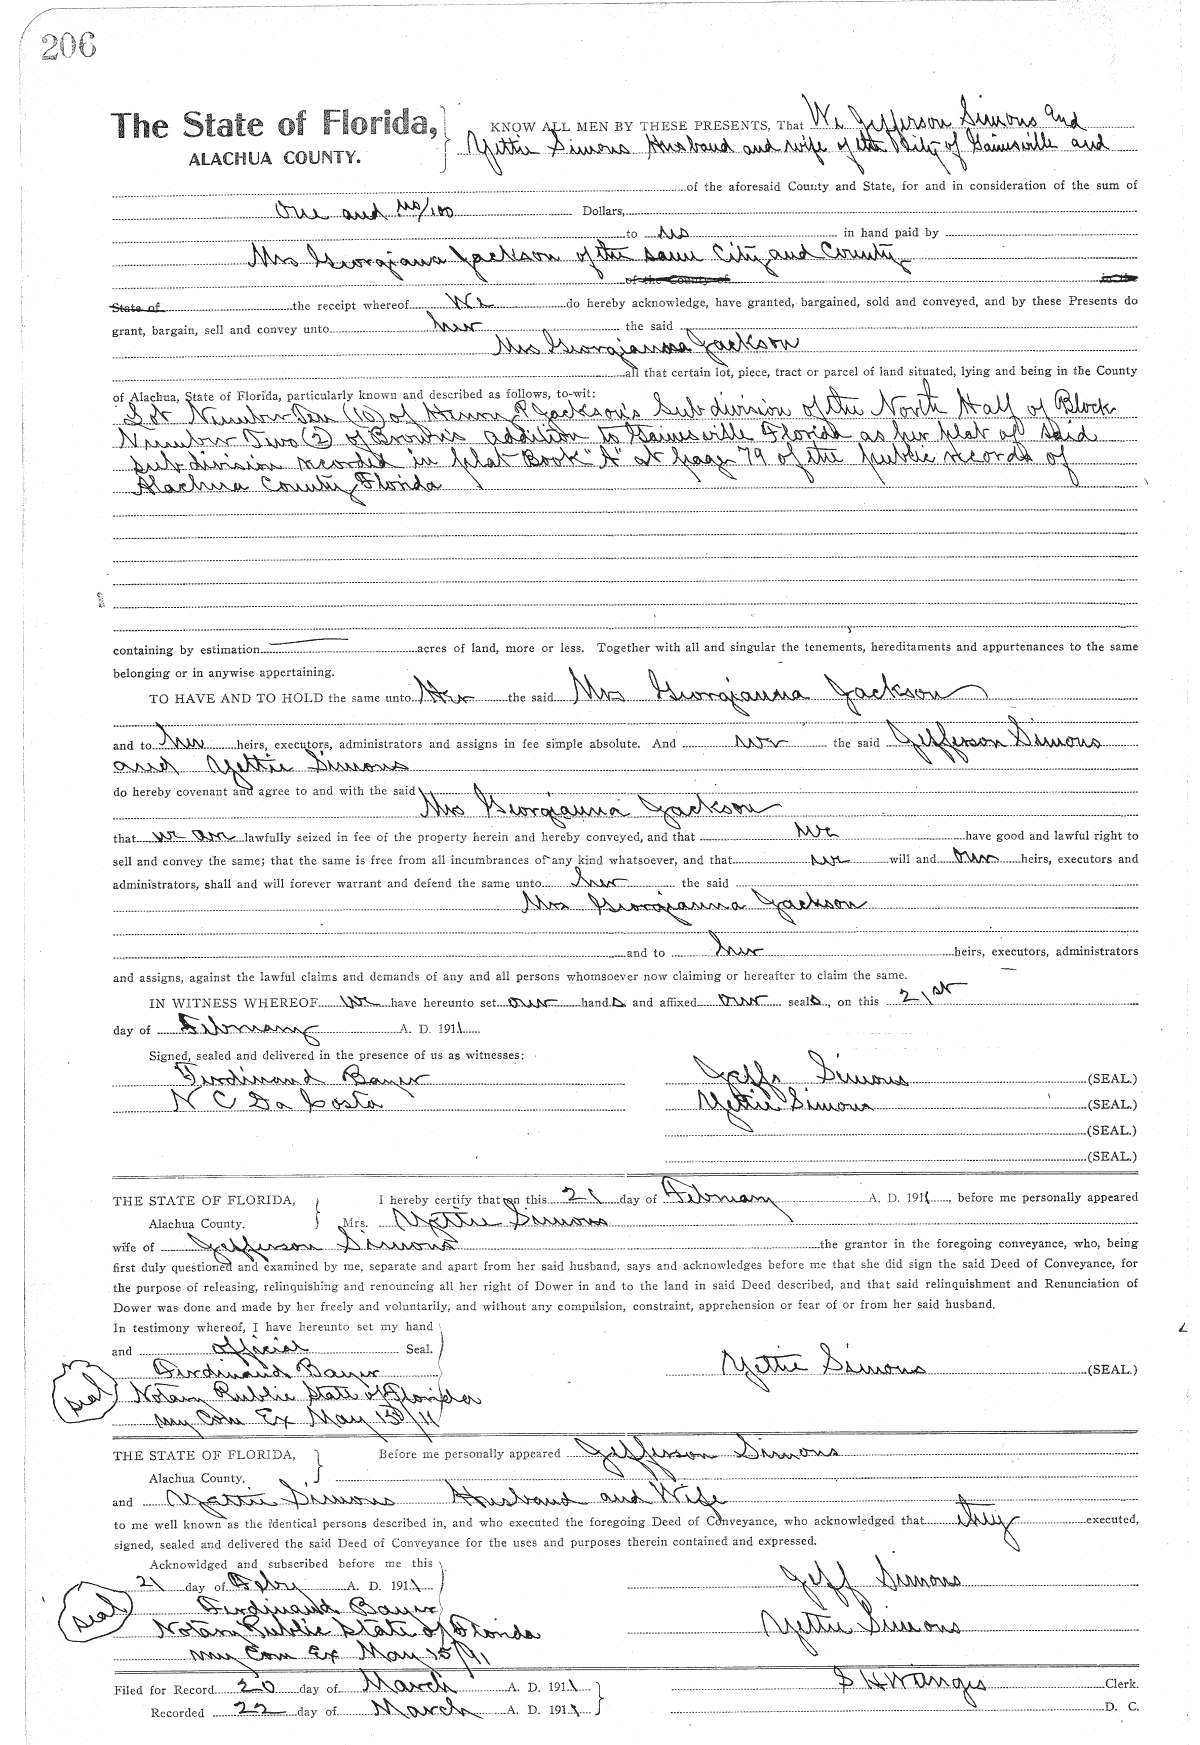 206
The State of Florida, KNOW ALL MEN BY THESE PRESENTS, That We Jefferson Simons and
ALACHUA COUNTY. Yettie Simons Husband and wife of the City of Gainesville and
of the aforesaid County and State, for and in consideration of the sum of
One and no/100 Dollars,
to us in hand paid by
Mrs Georgiana Jackson of the same City and County
of the County of in the
State of the receipt whereof We do hereby acknowledge, have granted, bargained, sold and conveyed, and by these Presents do
grant, bargain, sell and convey unto her the said
Mrs Georgianna Jackson
all that certain lot, piece, tract or parcel of land situated, lying and being in the County
of Alachua, State of Florida, particularly known and described as follows, to-wit:
Lot Number Ten (10) of Henry P. Jackson's Subdivision of the North Half of Block
Number Two (2) of Browns addition to Gainesville Florida as per plat of said
subdivision recorded in plat Book "A" at page 79 of the public records of
Alachua County Florida
containing by estimation acres of land, more or less. Together with all and singular the tenements, hereditaments and appurtenances to the same
belonging or in anywise appertaining.
TO HAVE AND TO HOLD the same unto Her the said Mrs Georgianna Jackson
and to her heirs, executors, administrators and assigns in fee simple absolute. And we the said Jefferson Simons
and Yettie Simons
do hereby covenant and agree to and with the said Mrs Georgianna Jackson
that we are lawfully seized in fee of the property herein and hereby conveyed, and that we have good and lawful right to
sell and convey the same; that the same is free from all incumbrances of any kind whatsoever, and that we will and our heirs, executors and
administrators, shall and will forever warrant and defend the same unto her the said
Mrs Georgianna Jackson
and to her heirs, executors, administrators
and assigns, against the lawful claims and demands of any and all persons whomsoever now claiming or hereafter to claim the same.
IN WITNESS WHEREOF we have hereunto set our hands and affixed our seals, on this 21st
day of February A. D. 1911
Signed, sealed and delivered in the presence of us as witnesses:
Ferdinand Bayer Jeff Simons (SEAL.)
N C Da Costa Yettie Simons (SEAL.)
(SEAL.)
(SEAL.)
THE STATE OF FLORIDA, I hereby certify that on this 21 day of February A. D. 1911, before me personally appeared
Alachua County. Mrs. Yettie Simons
wife of Jefferson Simons the grantor in the foregoing conveyance, who, being
first duly questioned and examined by me, separate and apart from her said husband, says and acknowledges before me that she did sign the said Deed of Conveyance, for
the purpose of releasing, relinquishing and renouncing all her right of Dower in and to the land in said Deed described, and that said relinquishment and Renunciation of
Dower was done and made by her freely and voluntarily, and without any compulsion, constraint, apprehension or fear of or from her said husband.
In testimony whereof, I have hereunto set my hand
and official Seal.
Ferdinand Bayer Yettie Simons (SEAL.)
Seal Notary Public State of Florida
my Com Ex May 15/11
THE STATE OF FLORIDA, Before me personally appeared Jefferson Simons
Alachua County.
and Yettie Simons Husband and Wife
to me well known as the identical persons described in, and who executed the foregoing Deed of Conveyance, who acknowledged that they executed,
signed, sealed and delivered the said Deed of Conveyance for the uses and purposes therein contained and expressed.
Acknowldged and subscribed before me this
21 day of Feby A. D. 1911 Jeff Simons
Seal Ferdinand Bayer
Notary Public State of Florida Yettie Simons
my Com Ex May 15/91
Filed for Record 20 day of March A. D. 1911 S H Wienges Clerk.
Recorded 22 day of March A. D. 1911 D. C.